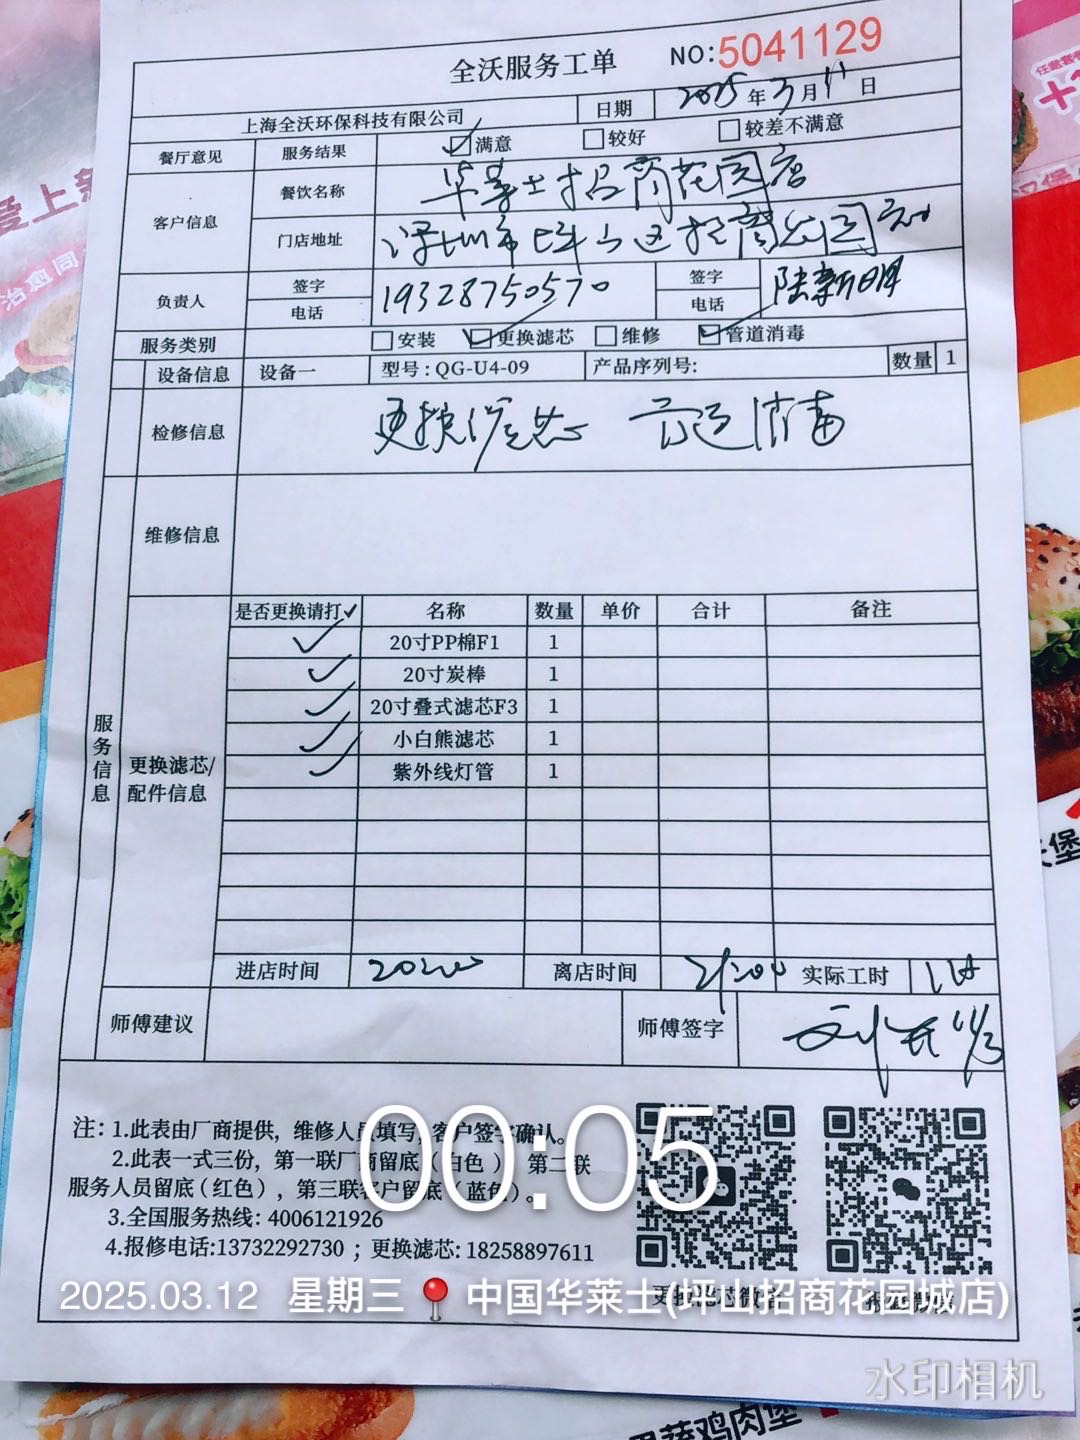 全沃服务工单
NO:5041129
上海全沃环保科技有限公司 日期 2025年3月11日
餐厅意见 服务结果 满意 较好 较差不满意
客户信息 餐饮名称 华莱士招商花园店
门店地址 深圳市坪山区招商花园
负责人 签字 电话 19328750570 签字 电话 陆新明
服务类别 安装 更换滤芯 维修 管道消毒
设备信息 设备一 型号:QG-U4-09 产品序列号: 数量 1
检修信息 更换滤芯 管道消毒
维修信息
服务信息
更换滤芯/配件信息
是否更换请打✓ 名称 数量 单价 合计 备注
✓ 20寸PP棉F1 1
✓ 20寸炭棒 1
✓ 20寸叠式滤芯F3 1
✓ 小白熊滤芯 1
✓ 紫外线灯管 1
进店时间 离店时间 21:00 实际工时
师傅建议 师傅签字
注: 1.此表由厂商提供，维修人员填写，客户签字确认。
2.此表一式三份，第一联厂商留底（白色），第二联
服务人员留底（红色），第三联客户留底（蓝色）。
3.全国服务热线: 4006121926
4.报修电话:13732292730 ; 更换滤芯: 18258897611
00:05
2025.03.12 星期三 中国华莱士(坪山招商花园城店)
更换滤芯微信
水印相机